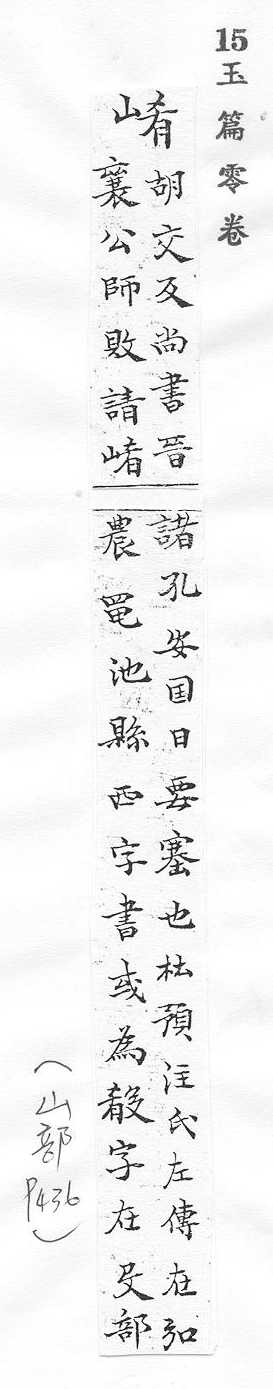 15 玉篇零卷
崤
胡交反尚書晉
襄公師敗請崤
諸孔安囯曰要塞也杜預注氏左傳在弘
農黽池縣西字書或為殽字在殳部
(山部 P436)